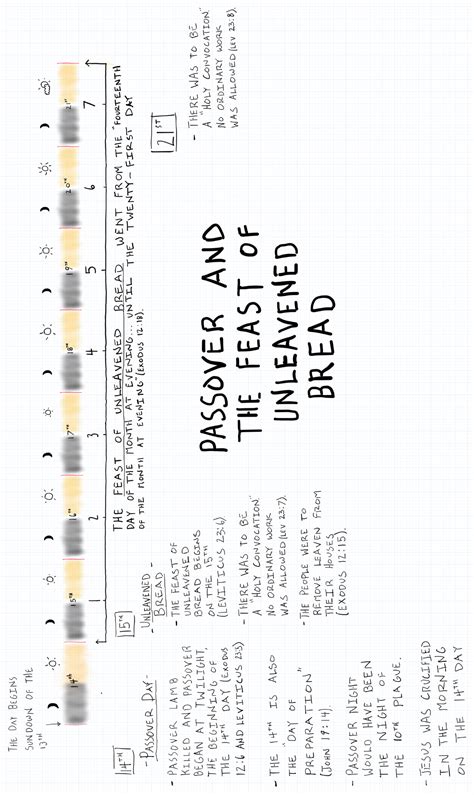 THE DAY BEGINS
SUNDOWN OF THE
13TH
14TH
15TH
16TH
17TH
18TH
19TH
20TH
21ST
1
2
3
4
5
6
7
THE FEAST OF UNLEAVENED BREAD WENT FROM THE "FOURTEENTH
DAY OF THE MONTH AT EVENING... UNTIL THE TWENTY-FIRST DAY
OF THE MONTH AT EVENING" (EXODUS 12:18).
14TH
- PASSOVER DAY -
- PASSOVER LAMB
KILLED AND PASSOVER
BEGAN AT TWILIGHT,
THE BEGINNING OF
THE 14TH DAY (EXODUS
12:6 AND LEVITICUS 23:5)
- THE 14TH IS ALSO
THE "DAY OF
PREPARATION"
(JOHN 19:14).
- PASSOVER NIGHT
WOULD HAVE BEEN
THE NIGHT OF
THE 10TH PLAGUE.
- JESUS WAS CRUCIFIED
IN THE MORNING
ON THE 14TH DAY
15TH
- UNLEAVENED
BREAD -
- THE FEAST OF
UNLEAVENED
BREAD BEGINS
ON THE 15TH
(LEVITICUS 23:6)
- THERE WAS TO BE
A "HOLY CONVOCATION"
NO ORDINARY WORK
WAS ALLOWED (LEV 23:7).
- THE PEOPLE WERE TO
REMOVE LEAVEN FROM
THEIR HOUSES
(EXODUS 12:15).
PASSOVER AND
THE FEAST OF
UNLEAVENED
BREAD
21ST
- THERE WAS TO BE
A "HOLY CONVOCATION"
NO ORDINARY WORK
WAS ALLOWED (LEV 23:8).